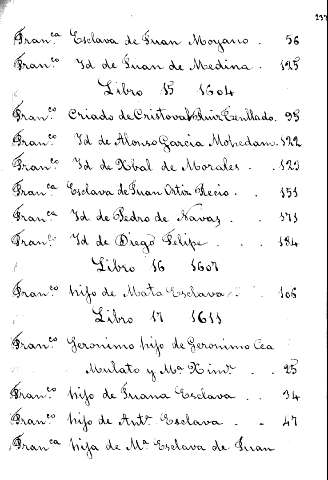 Fran.ca Esclava de Juan Moyano . 56
Fran.co Id de Juan de Medina . 125
Libro 15 1604
Fran.co Criado de Cristoval Ruiz 95
Fran.co Id de Alonso Garcia Mohedam. 122
Fran.co Id de Xbal de Morales . . 123
Fran.ca Esclava de Juan Ortiz Recio . . 151
Fran.ca Id de Pedro de Navas . . 171
Fran.co Id de Diego Felipe . . . 184
Libro 16 1607
Fran.co hijo de Mata Esclava . . 106
Libro 17 1611
Fran.co Geronimo hijo de Geronimo Cea
Mulato y M.a . . 25
Fran.co hijo de Juana Esclava . . 34
Fran.co hijo de Ant.a Esclava . . 47
Fran.ca hija de M.a Esclava de Juan